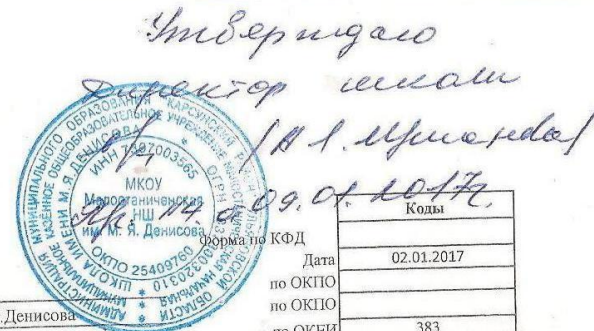 Утверждаю
Директор школы
Пр. 14 от 09.01.2017г.
АДМИНИСТРАЦИЯ МУНИЦИПАЛЬНОГО ОБРАЗОВАНИЯ КАРСУНСКИЙ
МУНИЦИПАЛЬНОЕ КАЗЁННОЕ ОБЩЕОБРАЗОВАТЕЛЬНОЕ УЧРЕЖДЕНИЕ
ШКОЛА ИМЕНИ М. Я. ДЕНИСОВА
МКОУ
Малостаниченская
НШ
им. М. Я. Денисова
ОКПО 25409760
Коды
Форма по КФД
Дата 02.01.2017
по ОКПО
по ОКПО
.Денисова
по ОКЕИ 383